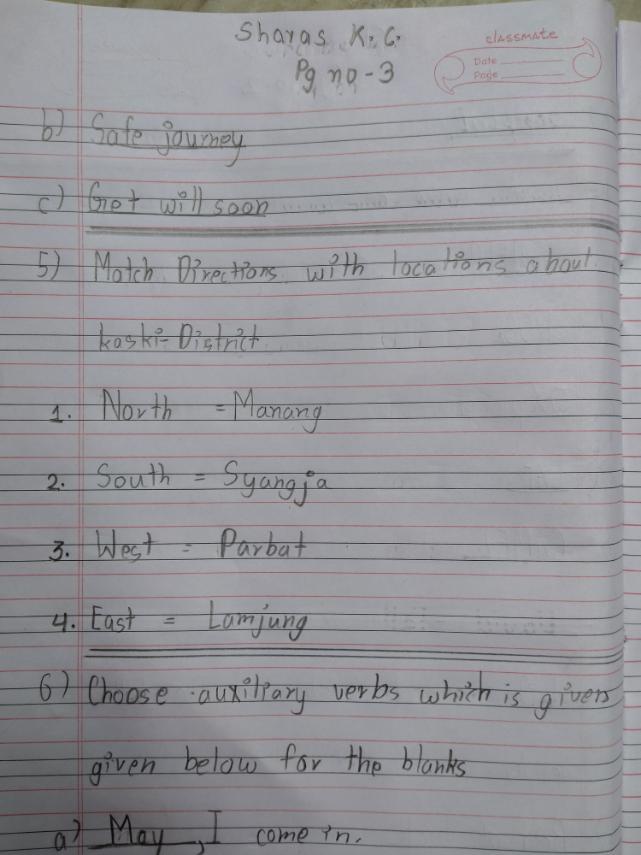 Sharas K.C.
classmate
Pg no-3
Date
Page
b) Safe journey
c) Get will soon
5) Match Directions with locations about
kaski-District
1. North = Manang
2. South = Syangja
3. West = Parbat
4. East = Lamjung
6) Choose auxiliary verbs which is given
given below for the blanks
a) May, I come in.